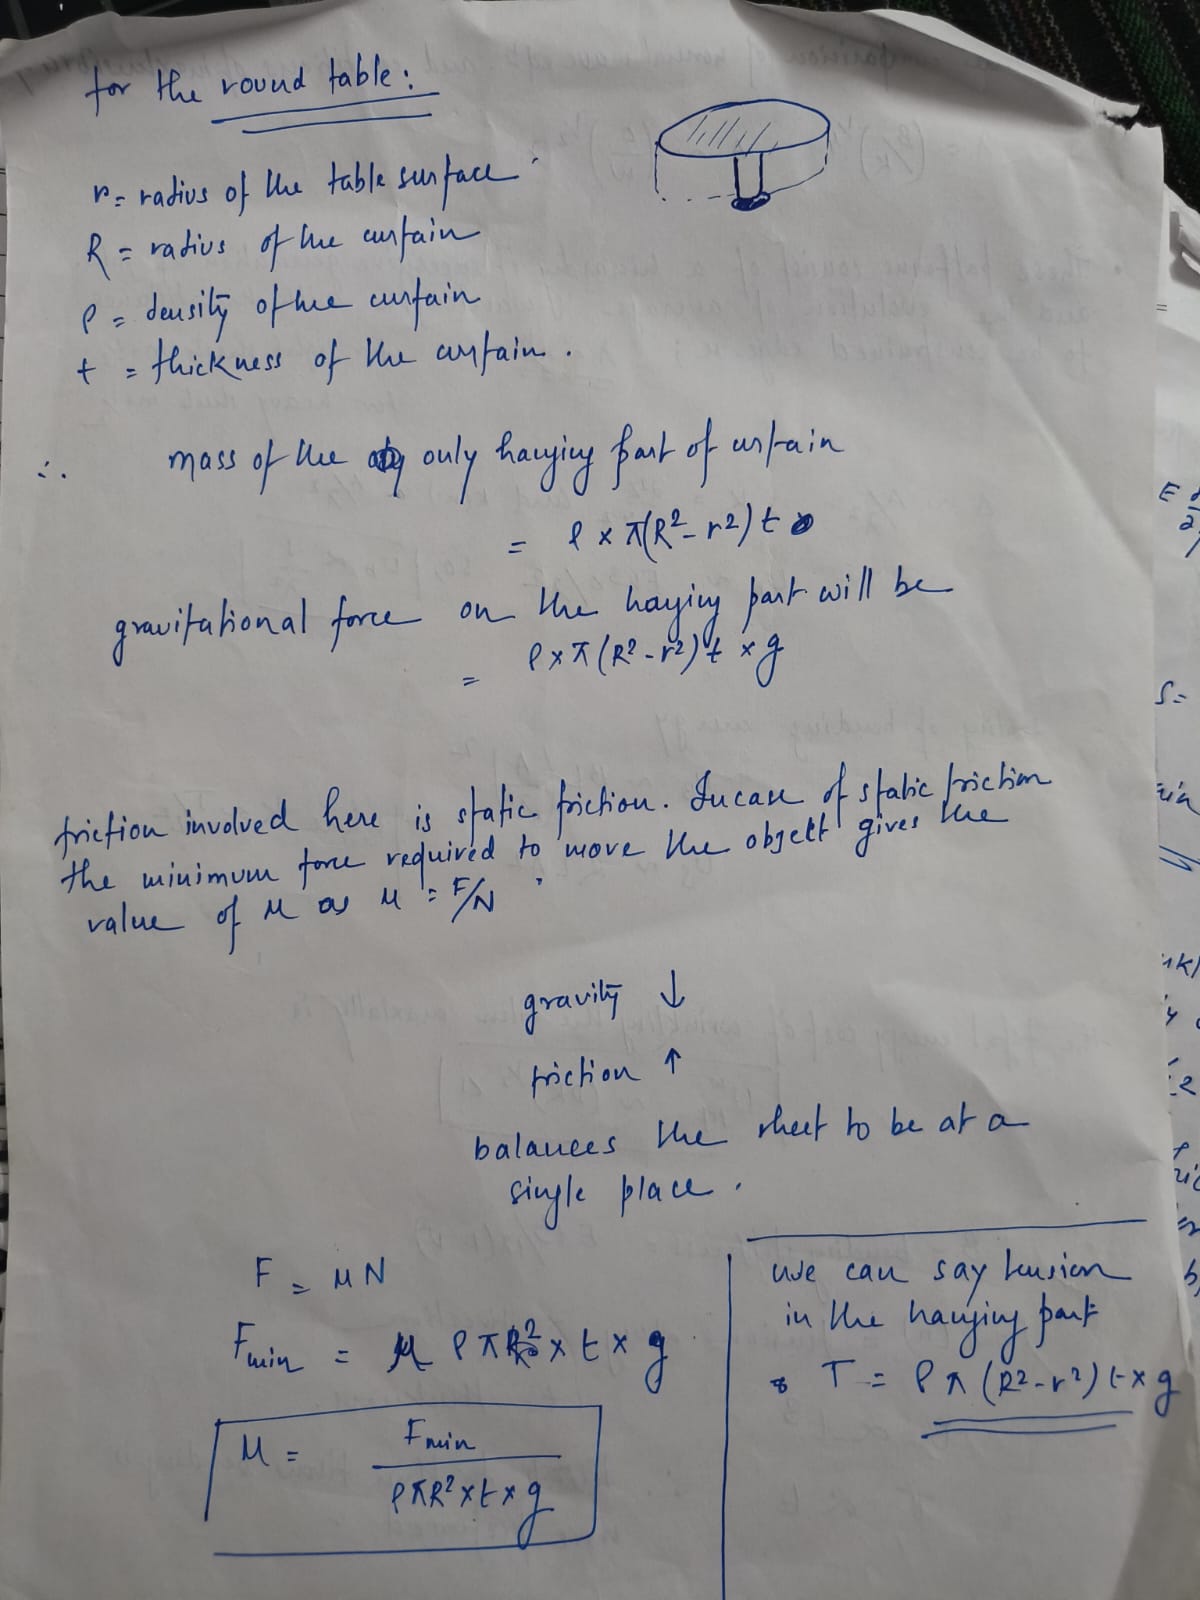 for the round table:
r = radius of the table surface
R = radius of the curtain
ρ = density of the curtain
t = thickness of the curtain.
∴ mass of the only hanging part of curtain
= ρ × π(R² - r²) t
gravitational force on the hanging part will be
= ρ × π (R² - r²) t × g
friction involved here is static friction. Incase of static friction
the minimum force required to move the object gives the
value of μ as μ = F/N
gravity ↓
friction ↑
balances the sheet to be at a
single place.
F = μN
Fmin = μ ρ π R² × t × g
μ = Fmin / ρπR² × t × g
we can say tension
in the hanging part
T = ρπ (R² - r²) t × g